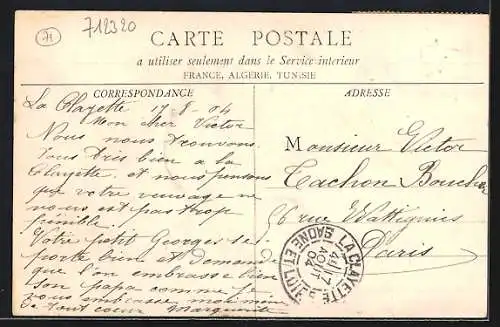 71
712320
CARTE POSTALE
a utiliser seulement dans le Service interieur
FRANCE, ALGERIE, TUNISIE
CORRESPONDANCE
La Clayette 17-8-04
Mon cher Victor
Nous nous trouvons
tous très bien a la
Clayette. et nous pensons
que votre veuvage ne
nous est pas trop
pénible.
Votre petit Georges se
porte bien et demande
que l'on embrasse bien
son papa comme je
vous embrasse moi même
de tout coeur Marguerite
ADRESSE
Monsieur Victor
Tachon Boucher
56 rue Wattignies
Paris
LA CLAYETTE
17
AOUT
04
SAONE-ET-LOIRE